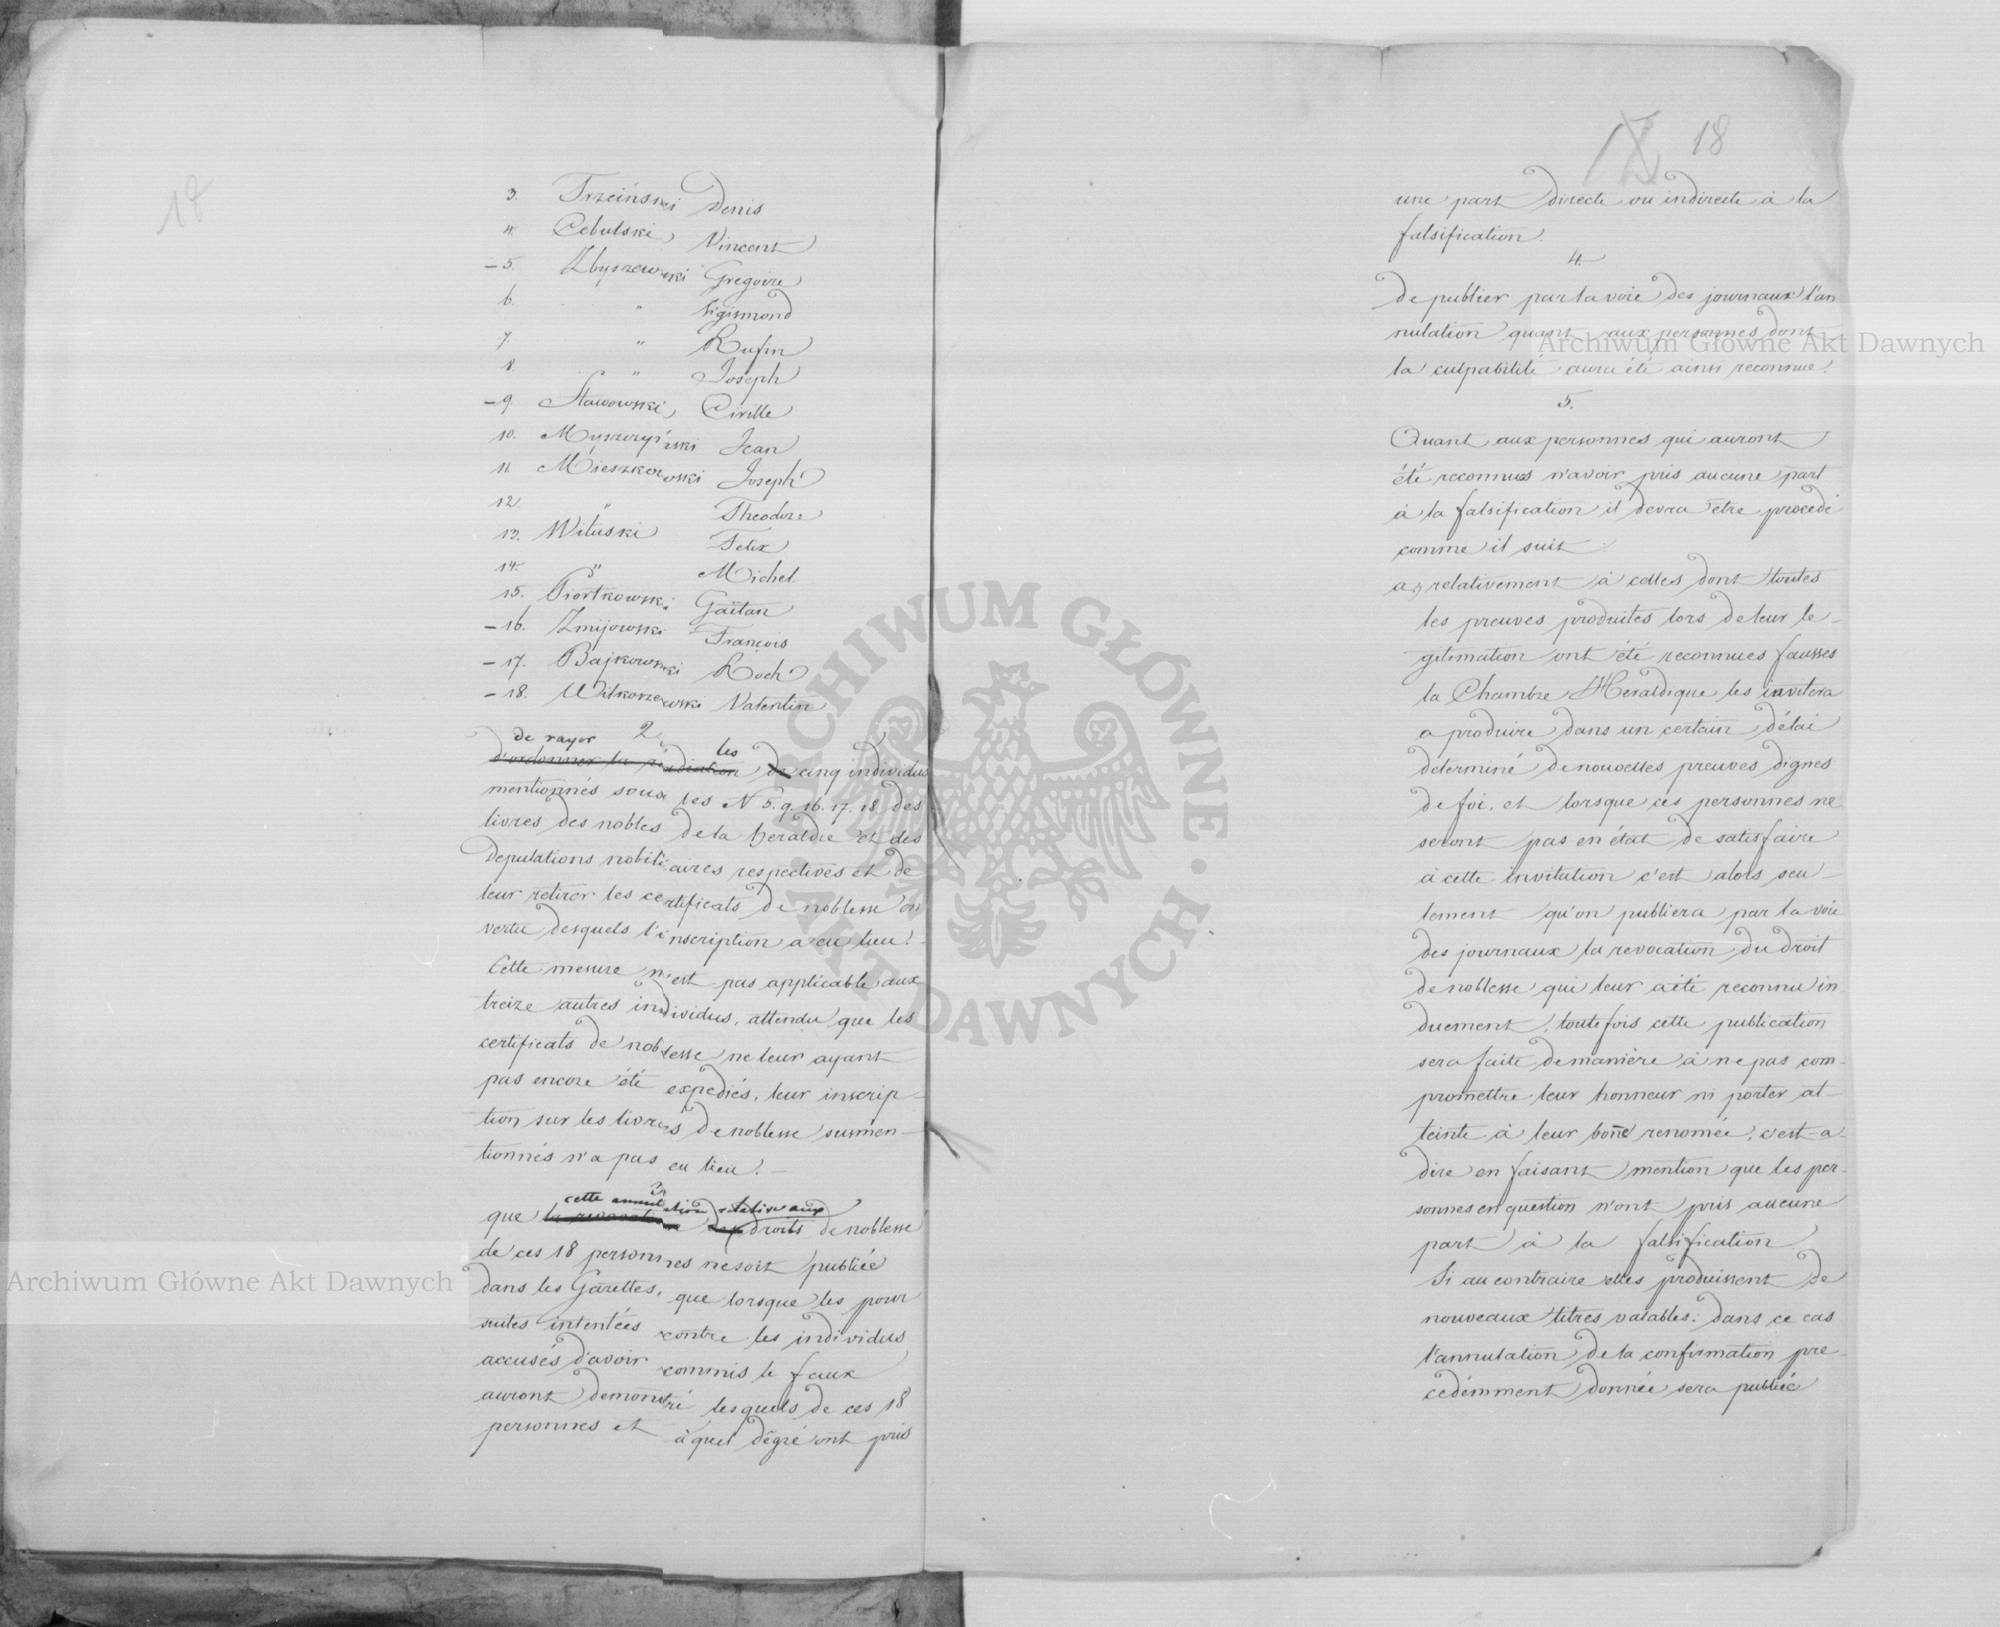 18
3. Trzciński Denis
4. Cebulski, Vincent
– 5. Zbyszewski Gregoire
6. " Sigismond
7. " Rufin
8. " Joseph
– 9. Stawowski, Cirille
10. Myszczyński Jean
11. Mieszkowski Joseph
12. " Theodore
13. Wituski Felix
14. " Michel
15. Piortkowski Gaëtan
– 16. Zmijowski François
– 17. Bajkowski Roch
– 18. Witkoszewski Valentin
2.
de rayer les
d'ordonner la radiation de cinq individus
mentionnés sous les N 5. 9. 16. 17. 18. des
livres des nobles de la heraldie et des
deputations nobiliaires respectives et de
leur retirer les certificats de noblesse en
vertu desquels l'inscription a eu lieu. –
Cette mesure n'est pas applicable aux
treize autres individus, attendu que les
certificats de noblesse ne leur ayant
pas encore été expediés, leur inscrip-
tion sur les livres de noblesse susmen-
tionnés n'a pas eu lieu. –
3.
cette annulation relative aux
que la revocation des droits de noblesse
de ces 18 personnes ne soit publiée
dans les Gazettes, que lorsque les pour
suites intentées contre les individus
accusés d'avoir commis le faux
auront demontré lesquels de ces 18
personnes et à quel dégré ont pris
18
une part directe ou indirecte à la
falsification.
4.
de publier par la voie des journaux l'an
nulation quant aux personnes dont
la culpabilité aura été ainsi reconnue.
5.
Quant aux personnes qui auront
été reconnues n'avoir pris aucune part
à la falsification il devra être procédé
comme il suit :
a, relativement à celles dont toutes
les preuves produites lors de leur le-
gitimation ont été reconnues fausses
la Chambre Heraldique les invitera
a produire dans un certain délai
déterminé de nouvelles preuves dignes
de foi, et lorsque ces personnes ne
seront pas en état de satisfaire
à cette invitation c'est alors seu-
lement qu'on publiera par la voie
des journaux la revocation du droit
de noblesse qui leur a été reconnu in-
duement, toutefois cette publication
sera faite de manière à ne pas com-
promettre leur honneur ni porter at-
teinte à leur bone renomée, c'est-a-
dire en faisant mention que les per-
sonnes en question n'ont pris aucune
part à la falsification.
Si au contraire elles produissent de
nouveaux titres valables: dans ce cas
l'annulation de la confirmation pre-
cedémment donnée sera publiée
Archiwum Główne Akt Dawnych
Archiwum Główne Akt Dawnych
ARCHIWUM GŁÓWNE · AKT DAWNYCH ·